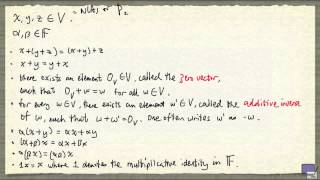 = N(A) or P₂
x, y, z ∈ V.
α, β ∈ 𝔽
• x+(y+z) = (x+y)+z
• x+y = y+x
• there exists an element 0ᵥ ∈ V, called the zero vector,
such that 0ᵥ + w = w for all w ∈ V
• for every w ∈ V, there exists an element w' ∈ V, called the additive inverse
of w, such that w + w' = 0ᵥ. One often writes w' as -w.
• α(x+y) = αx + αy
• (α+β)x = αx + βx
• α(βx) = (αβ)x
• 1x = x where 1 denotes the multiplicative identity in 𝔽.